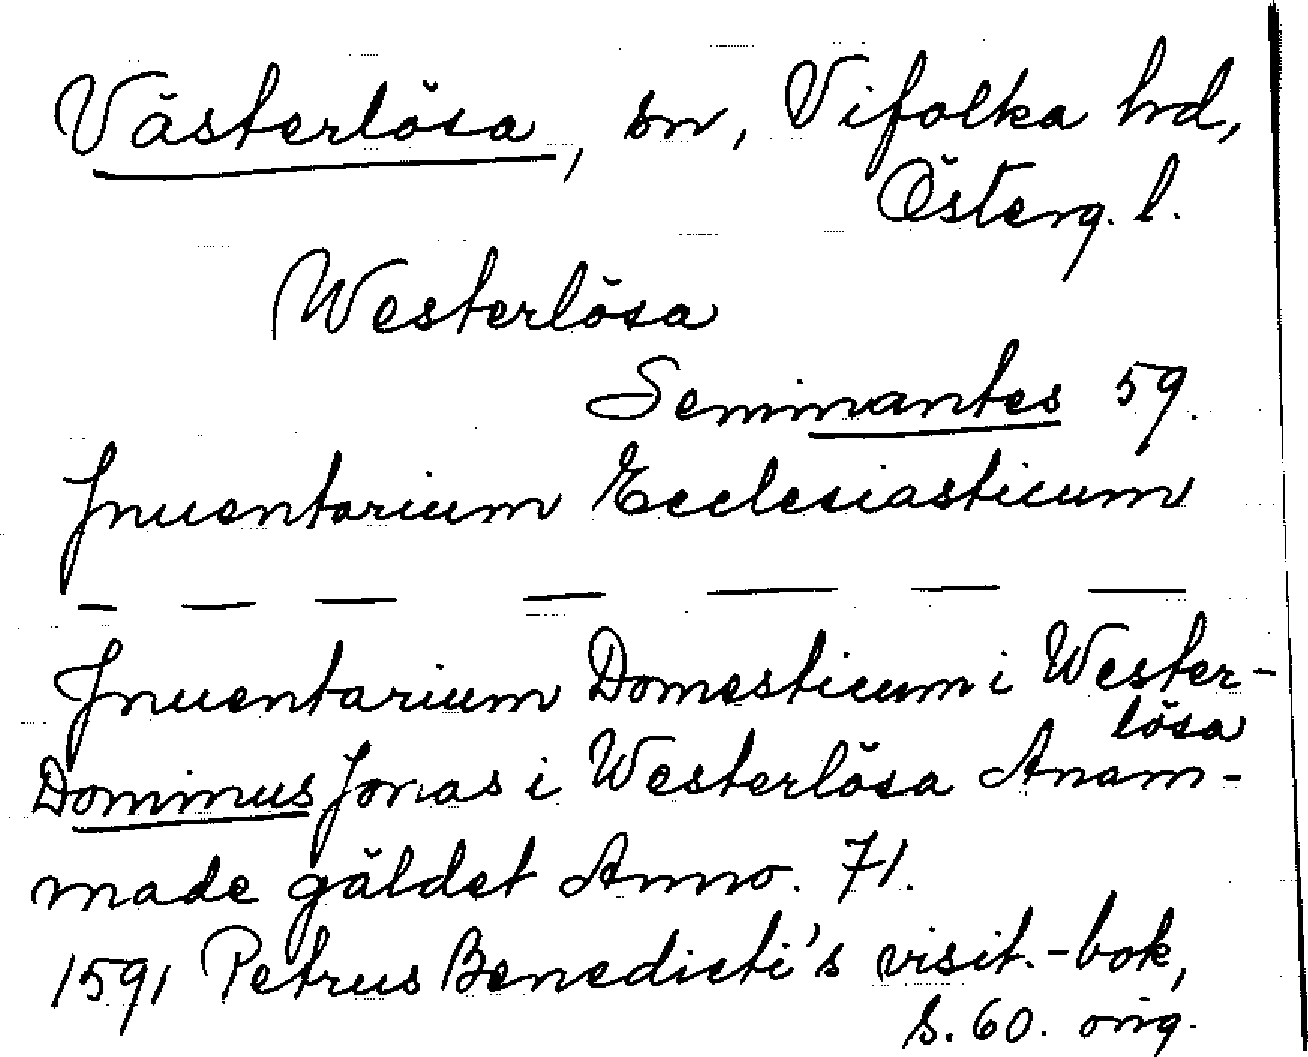 Västerlösa, sn, Vifolka hd,
Österg. l.
Westerlösa
Seminantes 59.
Inuentarium Ecclesiasticum
— — — — — — —
Inuentarium Domesticum i Wester-
lösa
Dominus Jonas i Westerlösa Anam-
made gäldet Anno. 71.
1591 Petrus Benedicti's visit.-bok,
s. 60. orig.